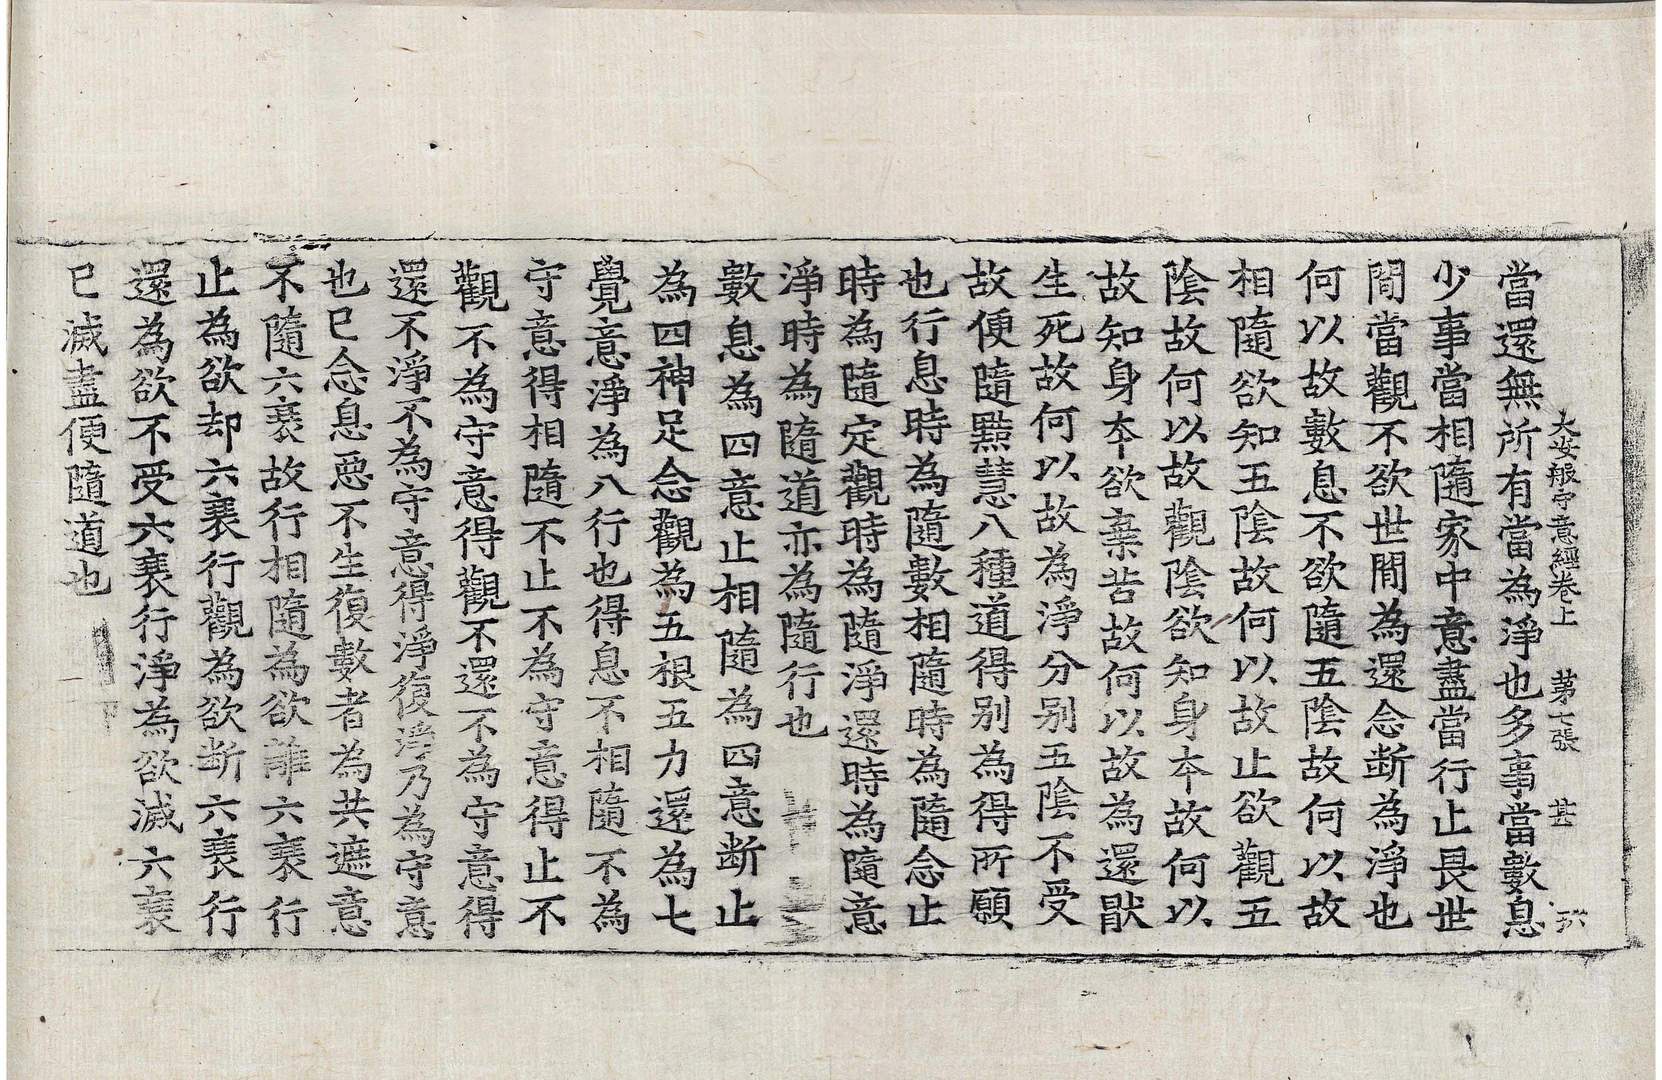 大安般守意經卷上 第七張 甚
當還無所有當為淨也多事當數息
少事當相隨家中意盡當行止畏世
間當觀不欲世間為還念断為淨也
何以故數息不欲隨五陰故何以故
相隨欲知五陰故何以故止欲觀五
陰故何以故觀陰欲知身夲故何以
故知身夲欲棄苦故何以故為還猒
生死故何以故為淨分别五陰不受
故便隨黠慧八種道得别為得所願
也行息時為隨數相隨時為隨念止
時為隨定觀時為隨淨還時為隨意
淨時為隨道亦為隨行也
數息為四意止相隨為四意断止
為四神足念觀為五根五力還為七
覺意淨為八行也得息不相隨不為
守意得相隨不止不為守意得止不
觀不為守意得觀不還不為守意得
還不淨不為守意得淨復淨乃為守意
也已念息惡不生復數者為共遮意
不隨六衰故行相隨為欲離六衰行
止為欲却六衰行觀為欲断六衰行
還為欲不受六衰行淨為欲滅六衰
已滅盡便隨道也